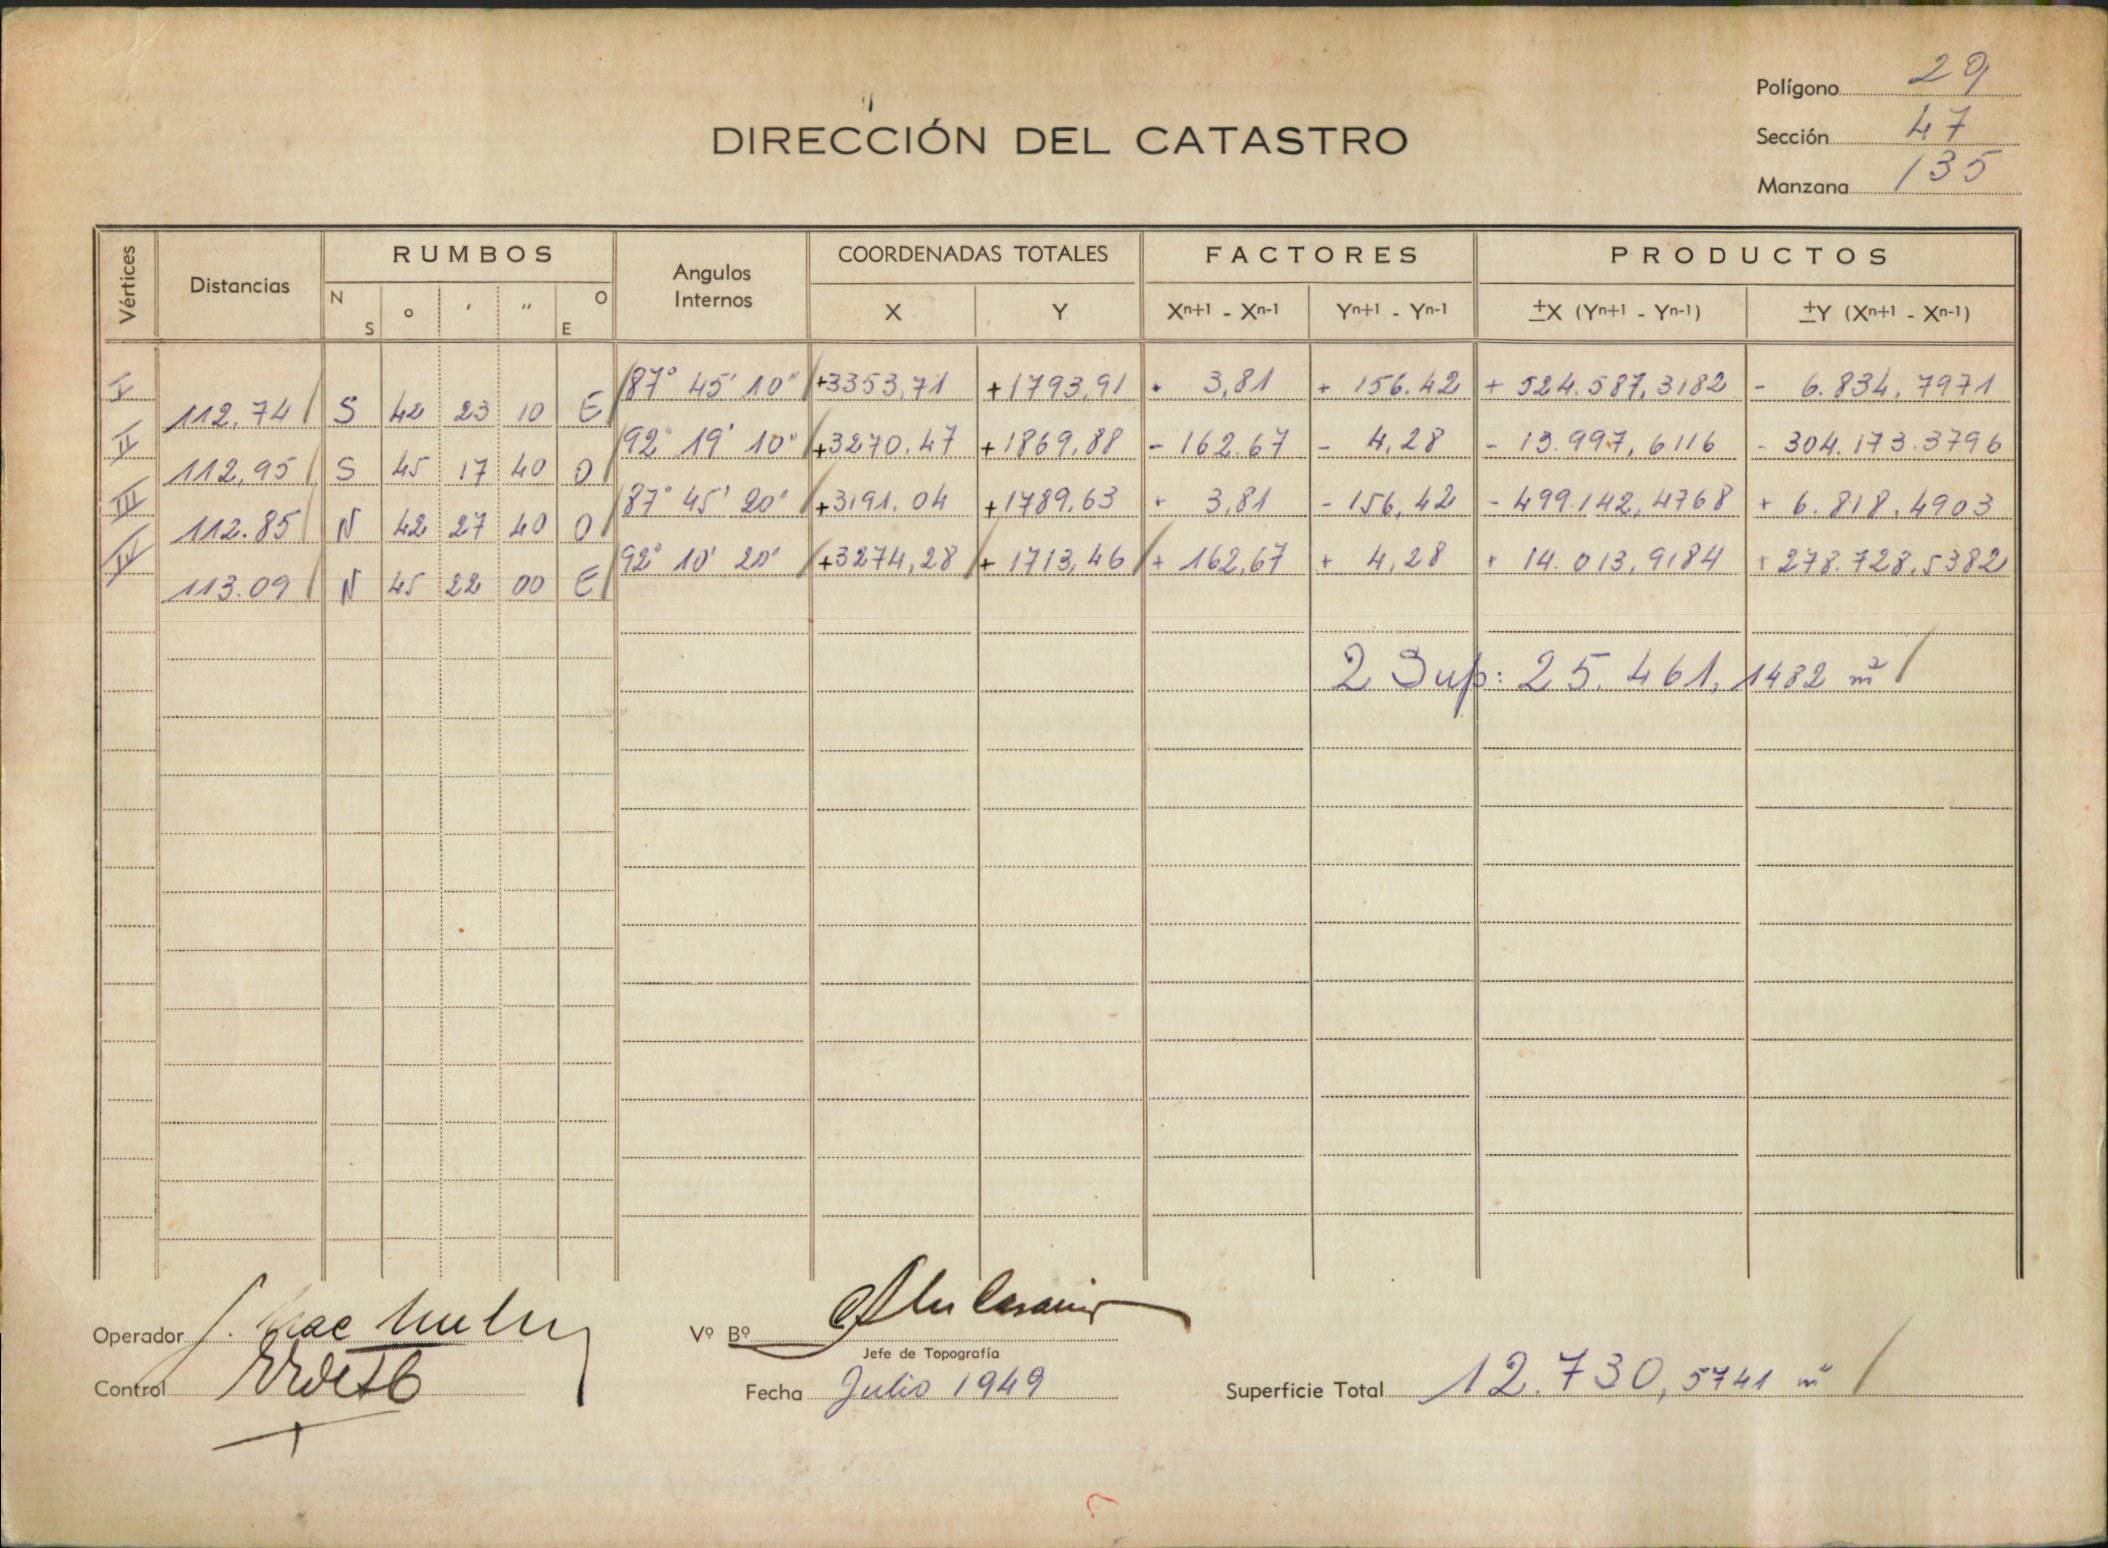 Polígono 29
DIRECCIÓN DEL CATASTRO
Sección 47
Manzana 135
Vértices Distancias RUMBOS Angulos Internos COORDENADAS TOTALES FACTORES PRODUCTOS
N S o ' " O E X Y Xn+1 - Xn-1 Yn+1 - Yn-1 ±X (Yn+1 - Yn-1) ±Y (Xn+1 - Xn-1)
I 87° 45' 10" +3353,71 +1793,91 + 3,81 + 156.42 + 524.587,3182 - 6.834,7971
112.74 S 42 23 10 E
II 92° 19' 10" +3270.47 +1869,88 - 162.67 - 4,28 - 13.997,6116 - 304.173.3796
112,95 S 45 17 40 O
III 87° 45' 20" +3191.04 +1789,63 + 3,81 - 156,42 - 499.142,4768 + 6.818.4903
112.85 N 42 27 40 O
IV 92° 10' 20" +3274,28 + 1713,46 + 162,67 + 4,28 + 14.013,9184 + 278.728,5382
113.09 N 45 22 00 E
2 Sup: 25.461,1482 m²
Operador
Vº Bº
Jefe de Topografía
Control
Fecha Julio 1949
Superficie Total 12.730,5741 m²